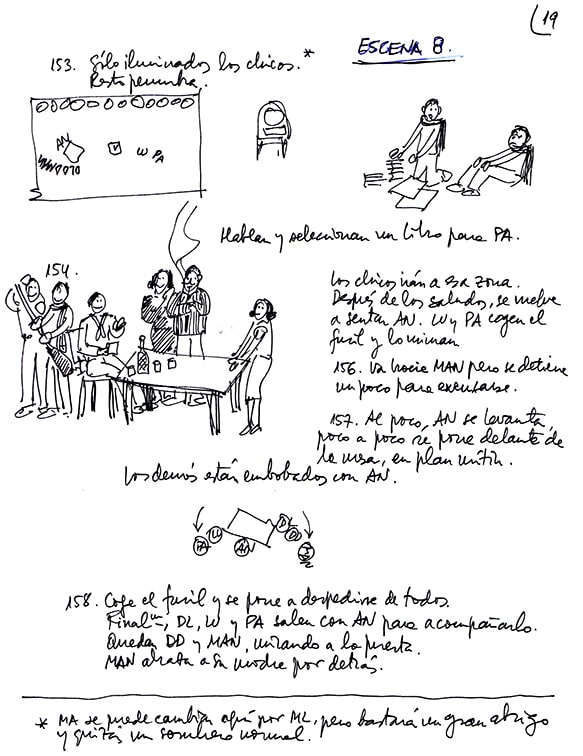 19
ESCENA 8.
153. Sólo iluminados los chicos. *
Resto penumbra.
AN
V
W PA
Hablan y seleccionan un libro para PA.
154.
Los chicos irán a esa zona.
Después de los saludos, se vuelve
a sentar AN. W y PA cogen el
fusil y lo miran
156. Va hacia MAN pero se detiene
un poco para excusarse.
157. Al poco, AN se levanta,
poco a poco se pone delante de
la mesa, en plan mitin.
Los demás están embobados con AN.
PA W AN DL DD
158. Coge el fusil y se pone a despedirse de todos.
Final.te, DL, W y PA salen con AN para acompañarlo.
Quedan DD y MAN, mirando a la puerta.
MAN abraza a su madre por detrás.
* MA se puede cambiar aquí por ML, pero bastará un gran abrigo
y quizás un sombrero normal.